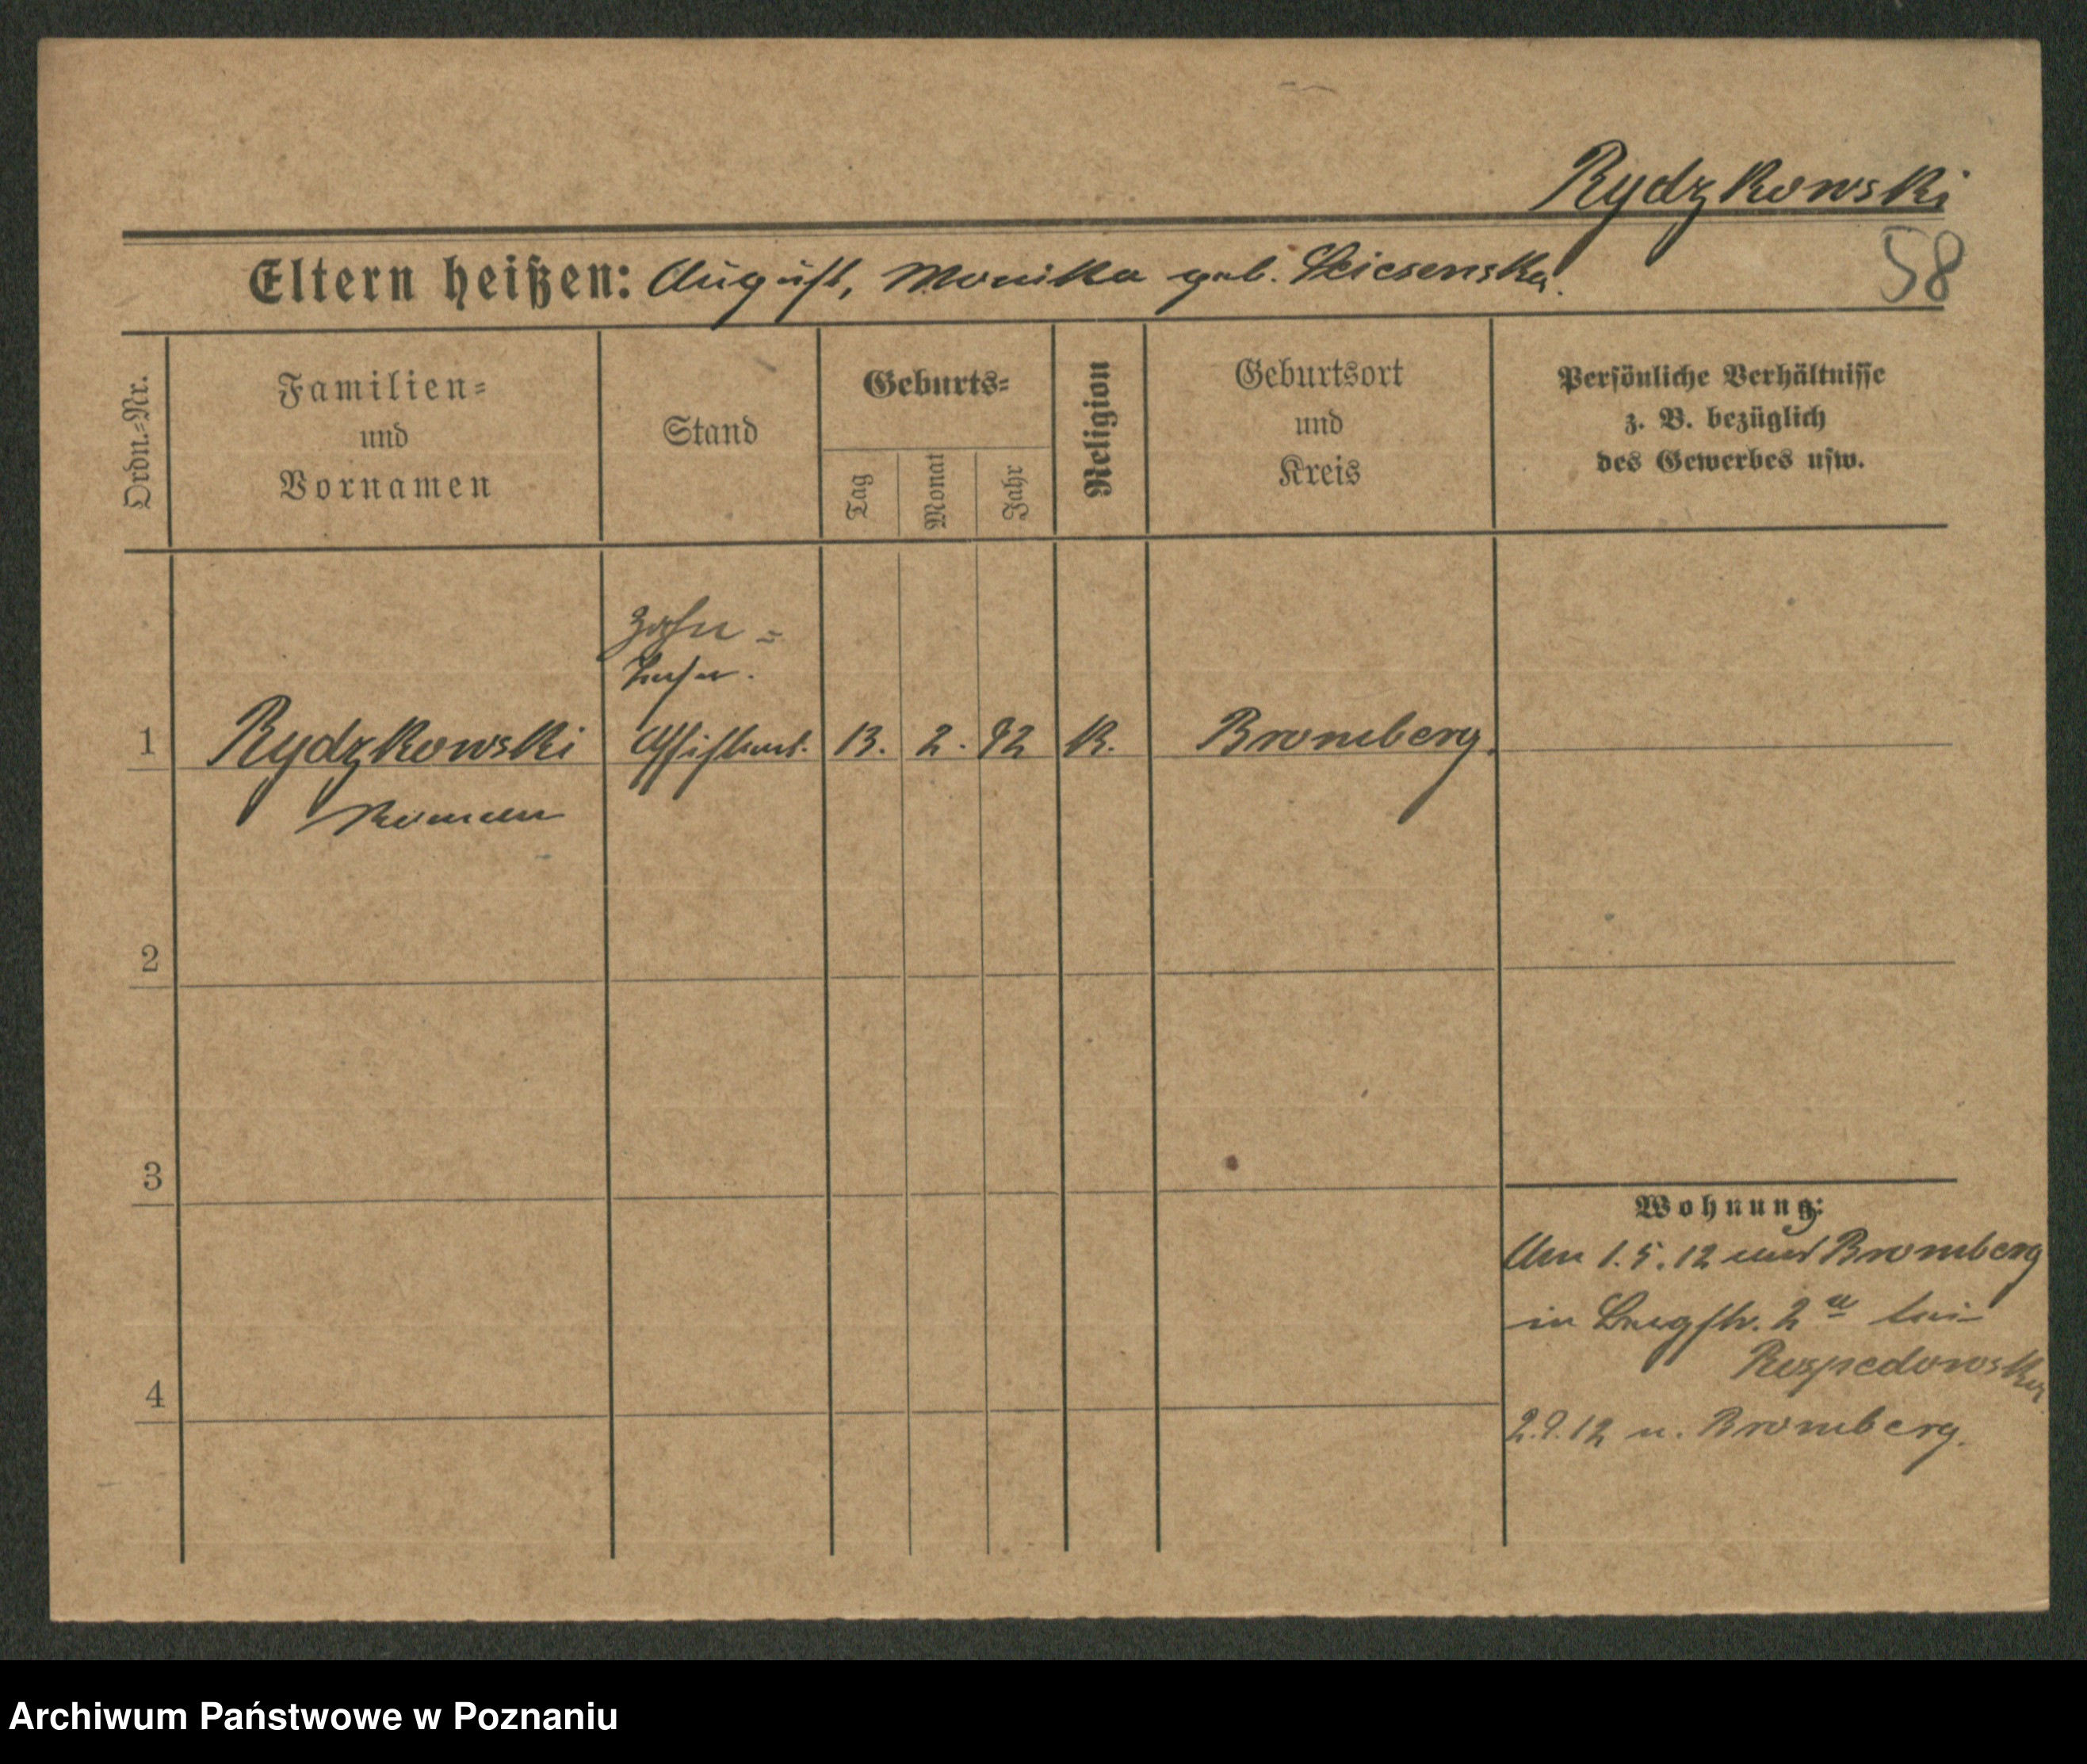 Rydzkowski
58
Eltern heißen: August, Monika geb.
Ordn.-Nr.
Familien-
und
Vornamen
Stand
Geburts-
Tag
Monat
Jahr
Religion
Geburtsort
und
Kreis
Persönliche Verhältnisse
z. B. bezüglich
des Gewerbes usw.
Zahn-
techn.
1 Rydzkowski Assistent. 13. 2. 92 K. Bromberg.
Roman
2
3
Wohnung:
Am 1.5.12 aus Bromberg
in Bergstr. 2 a bei
4
2.9.12 n. Bromberg.
Archiwum Państwowe w Poznaniu